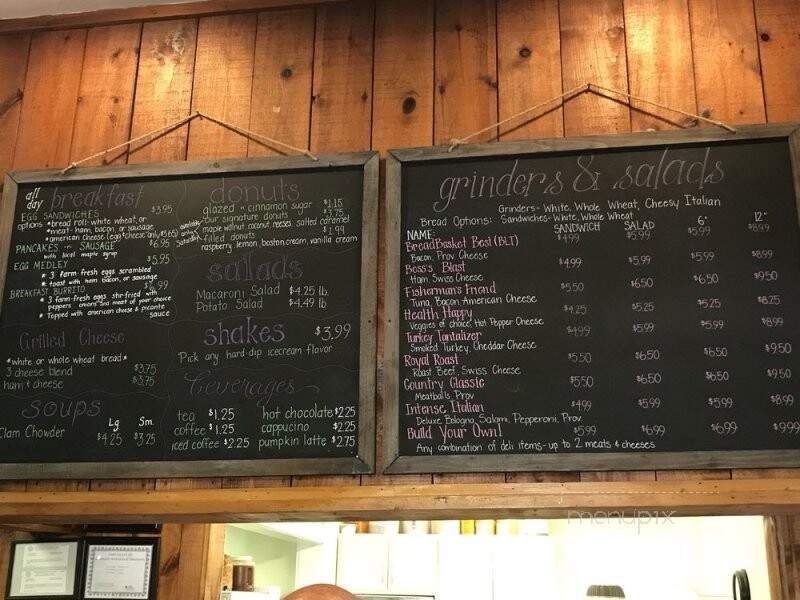 all day
breakfast
EGG SANDWICHES $3.95
options *bread roll- white, wheat, or
*meat- ham, bacon, or sausage
*american cheese (egg+cheese only $3.65)
PANCAKES SAUSAGE $6.95
with local maple syrup
EGG MEDLEY $5.95
* 3 farm fresh eggs scrambled
* toast with ham, bacon, or sausage
BREAKFAST BURRITO
* 3 farm-fresh eggs stir-fried with
peppers onions and meat of your choice
* Topped with american cheese & picante
sauce
Grilled Cheese
*white or whole wheat bread*
3 cheese blend $3.75
ham & cheese $3.75
soups
Lg Sm.
Clam Chowder $4.25 $3.25
donuts
glazed - cinnamon sugar $1.15
our signature donuts
maple walnut, coconut, reeses, salted caramel
filled donuts $1.99
raspberry, lemon, boston cream, vanilla cream
salads
Macaroni Salad $4.25 lb.
Potato Salad $4.49 lb
shakes $3.99
Pick any hard-dip icecream flavor
beverages
tea $1.25
coffee $1.25
iced coffee $2.25
hot chocolate $2.25
cappucino $2.25
pumpkin latte $2.75
grinders & salads
Grinders- White, Whole Wheat, Cheesy Italian
Bread Options: Sandwiches- White, Whole Wheat
NAME: SANDWICH SALAD 6" 12"
BreadBasket Best (BLT) $4.99 $5.99 $5.99 $8.99
Bacon, Prov Cheese
Boss's Blast $4.99 $5.99 $5.99 $8.99
Ham, Swiss Cheese
Fisherman's Friend $5.50 $6.50 $6.50 $9.50
Tuna, Bacon American Cheese
Health Happy $4.25 $5.25 $5.25 $8.25
Veggies of choice, Hot Pepper Cheese
Turkey Tantalizer $4.99 $5.99 $5.99 $8.99
Smoked Turkey, Cheddar Cheese
Royal Roast $5.50 $6.50 $6.50 $9.50
Roast Beef, Swiss Cheese
Country Classic $5.50 $6.50 $6.50 $9.50
Meatballs, Prov
Intense Italian $4.99 $5.99 $5.99 $8.99
Deluxe Bologna, Salami, Pepperoni, Prov
Build Your Own! $5.99 $6.99 $6.99 $9.99
Any combination of deli items- up to 2 meats & cheeses
menupix